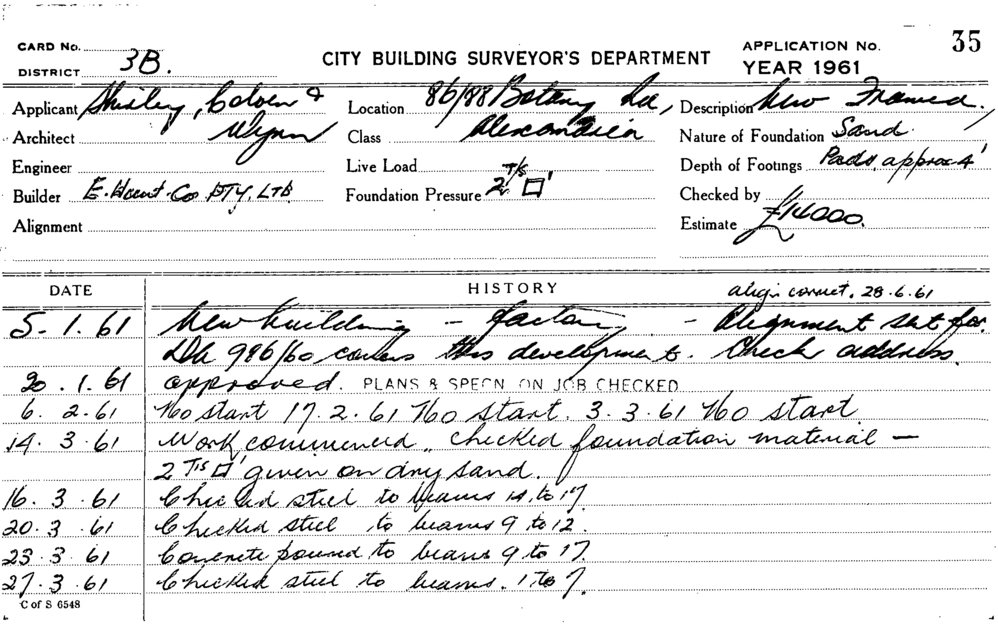 CARD No.
DISTRICT 3B.
CITY BUILDING SURVEYOR'S DEPARTMENT
APPLICATION No. 35
YEAR 1961
Applicant Shirley, Colven &
Architect Wynn
Engineer
Builder E. Hount Co PTY, LTD
Alignment
Location 86/88 Botany Rd,
Class Alexandria
Live Load
Foundation Pressure 2 T/s □'
Description New Framed
Nature of Foundation Sand
Depth of Footings Pads, approx 4'
Checked by
Estimate £14000.
DATE HISTORY
align correct. 28.6.61
5.1.61 New building - factory - Alignment set for.
DA 996/60 covers this development. Check address.
20.1.61 approved. PLANS & SPECN ON JOB CHECKED
6.2.61 No start 17.2.61 No start. 3.3.61 No start
14.3.61 Work commenced, checked foundation material -
2 T/s □' given on dry sand.
16.3.61 Checked steel to beams 14 to 17.
20.3.61 Checked steel to beams 9 to 12.
23.3.61 Concrete poured to beams 9 to 17.
27.3.61 Checked steel to beams. 1 to 7.
C of S 6548